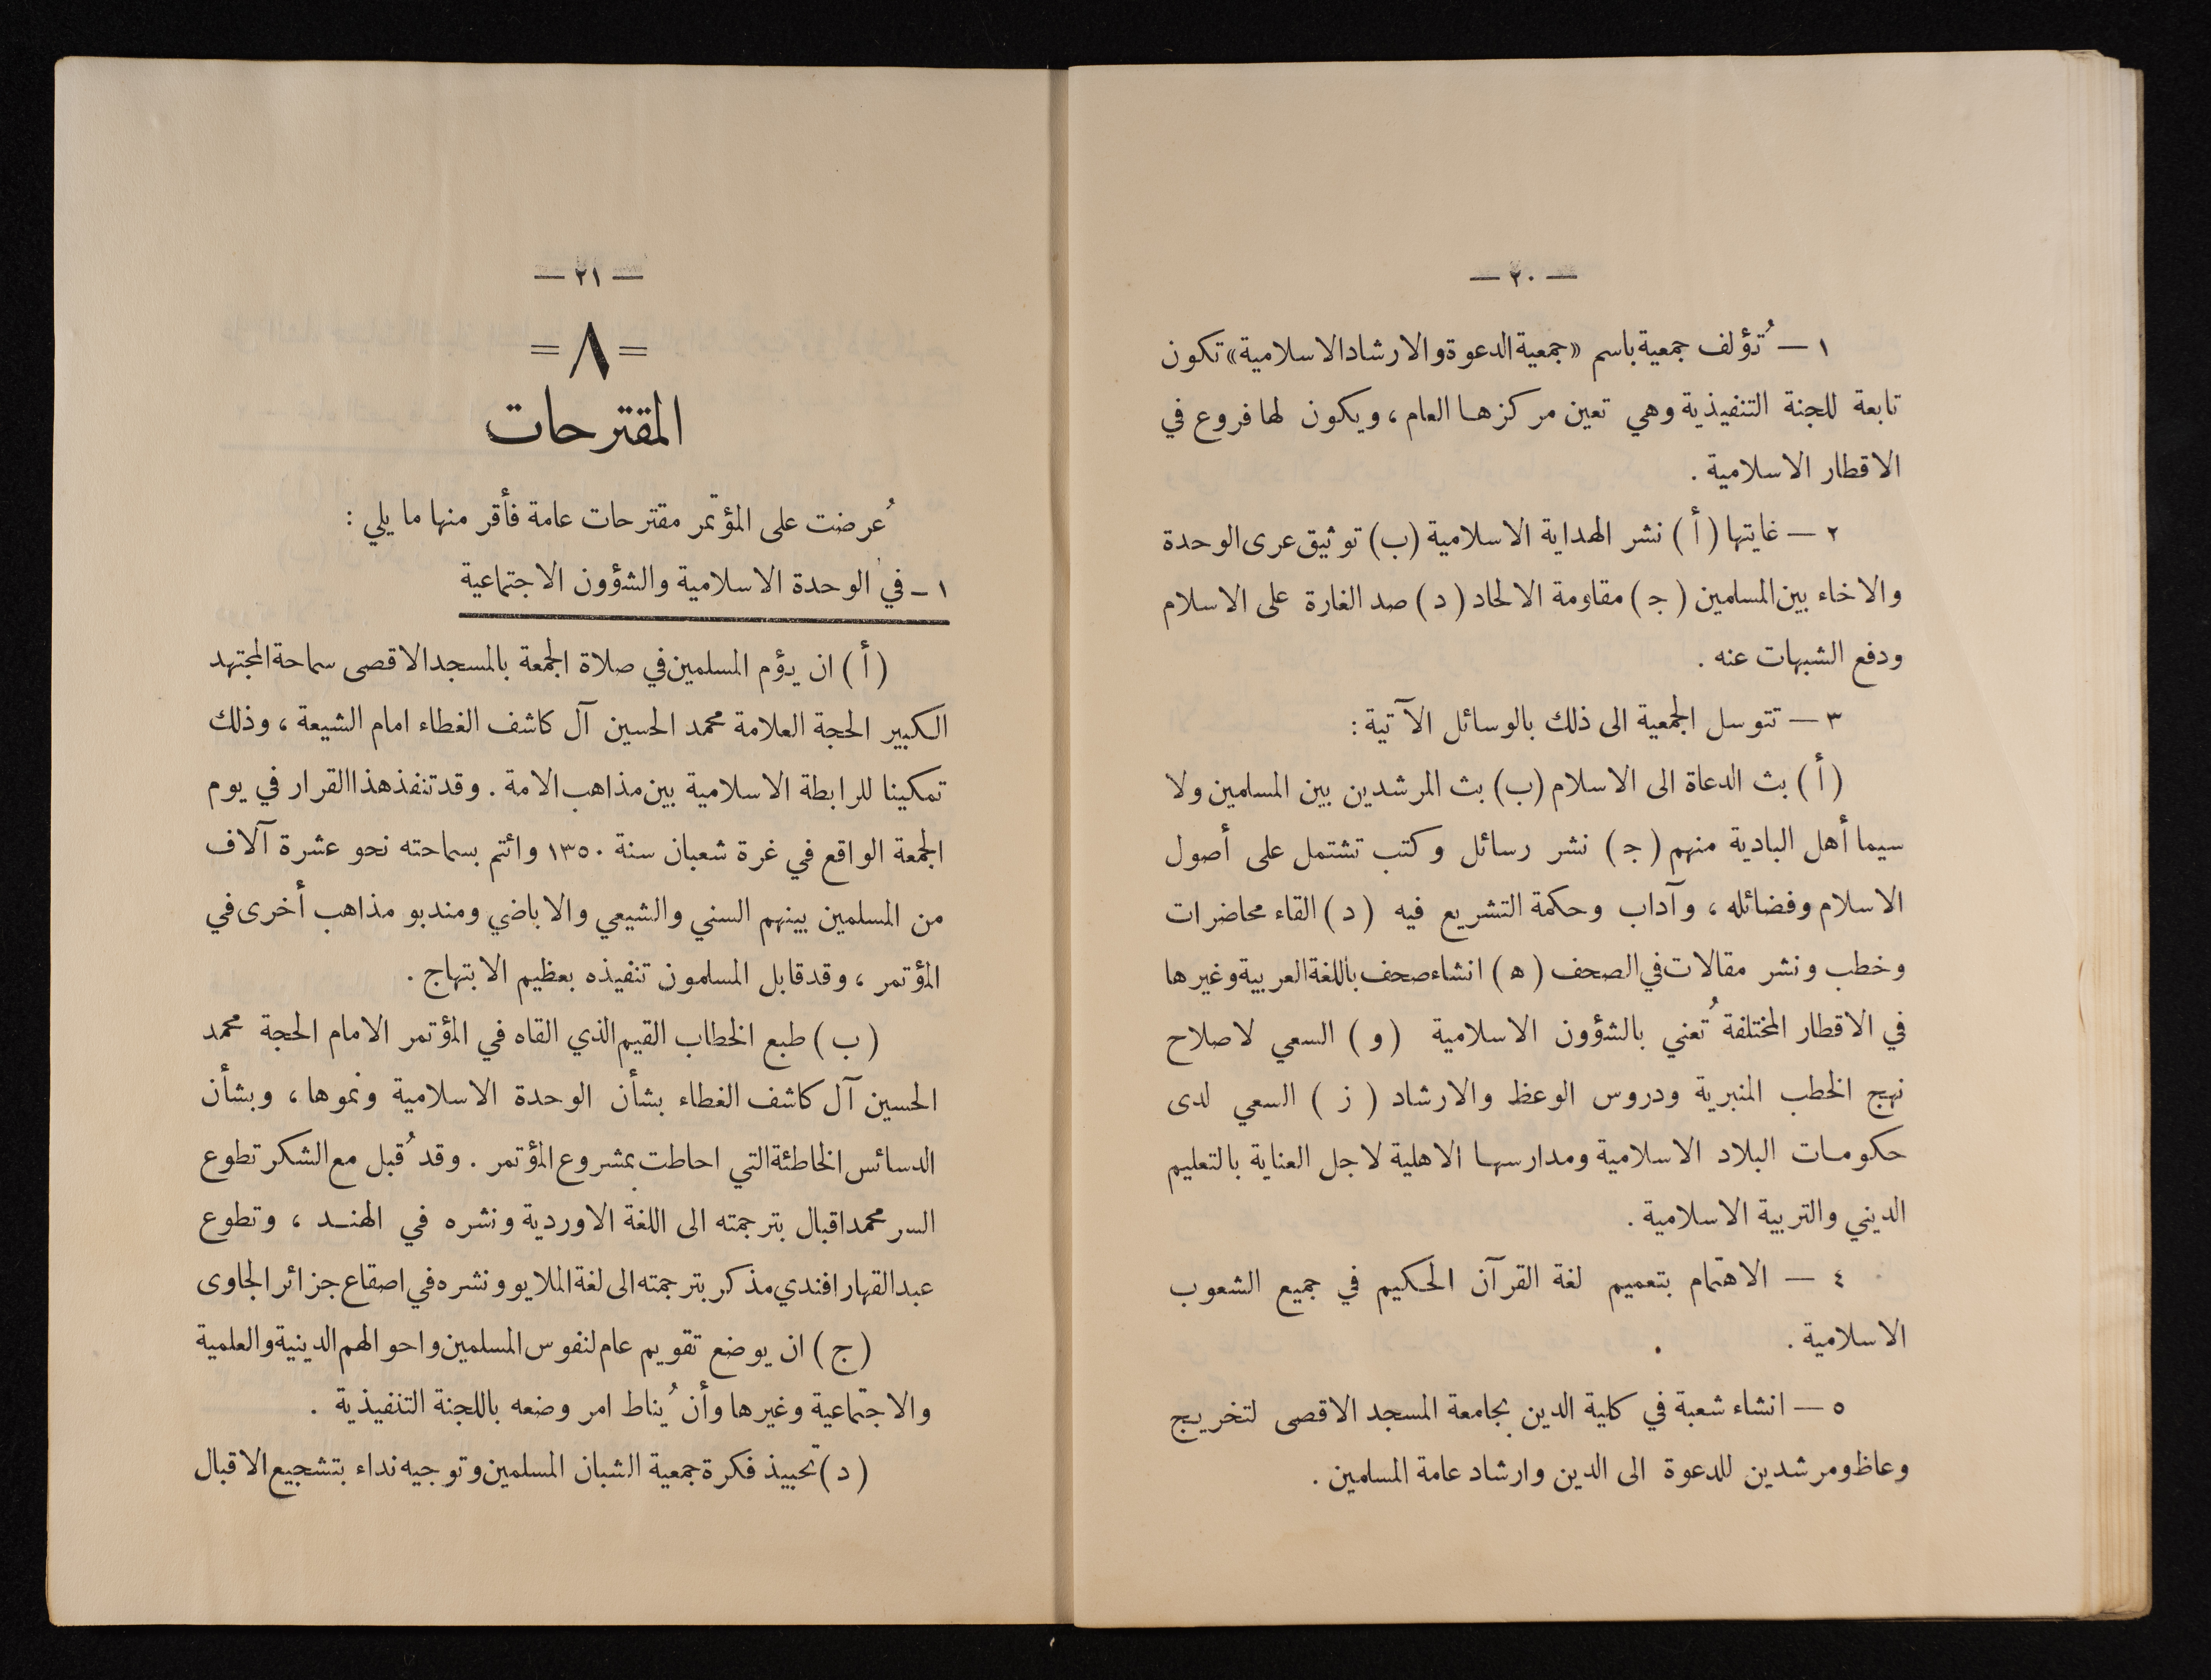 — ٢٠ —
١ — تُؤلف جمعية باسم «جمعية الدعوة والارشاد الاسلامية» تكون
تابعة للجنة التنفيذية وهي تعين مركزها العام ، ويكون لها فروع في
الاقطار الاسلامية .
٢ — غايتها (أ) نشر الهداية الاسلامية (ب) توثيق عرى الوحدة
والاخاء بين المسلمين (ج) مقاومة الالحاد (د) صد الغارة على الاسلام
ودفع الشبهات عنه .
٣ — تتوسل الجمعية الى ذلك بالوسائل الآتية :
(أ) بث الدعاة الى الاسلام (ب) بث المرشدين بين المسلمين ولا
سيما أهل البادية منهم (ج) نشر رسائل وكتب تشتمل على أصول
الاسلام وفضائله ، وآداب وحكمة التشريع فيه (د) القاء محاضرات
وخطب ونشر مقالات في الصحف (ه) انشاء صحف باللغة العربية وغيرها
في الاقطار المختلفة تُعنى بالشؤون الاسلامية (و) السعي لاصلاح
نهج الخطب المنبرية ودروس الوعظ والارشاد (ز) السعي لدى
حكومات البلاد الاسلامية ومدارسها الاهلية لاجل العناية بالتعليم
الديني والتربية الاسلامية .
٤ — الاهتمام بتعميم لغة القرآن الحكيم في جميع الشعوب
الاسلامية .
٥ — انشاء شعبة في كلية الدين بجامعة المسجد الاقصى لتخريج
وعاظ ومرشدين للدعوة الى الدين وارشاد عامة المسلمين .
— ٢١ —
= ٨ =
المقترحات
عُرضت على المؤتمر مقترحات عامة فأقر منها ما يلي :
١ - في الوحدة الاسلامية والشؤون الاجتماعية
(أ) ان يؤم المسلمين في صلاة الجمعة بالمسجد الاقصى سماحة المجتهد
الكبير الحجة العلامة محمد الحسين آل كاشف الغطاء امام الشيعة ، وذلك
تمكينا للرابطة الاسلامية بين مذاهب الامة . وقد تنفذ هذا القرار في يوم
الجمعة الواقع في غرة شعبان سنة ١٣٥٠ وائتم بسماحته نحو عشرة آلاف
من المسلمين بينهم السني والشيعي والاباضي ومندبو مذاهب أخرى في
المؤتمر ، وقد قابل المسلمون تنفيذه بعظيم الابتهاج .
(ب) طبع الخطاب القيم الذي القاه في المؤتمر الامام الحجة محمد
الحسين آل كاشف الغطاء بشأن الوحدة الاسلامية ونموها ، وبشأن
الدسائس الخاطئة التي احاطت بمشروع المؤتمر . وقد قُبل مع الشكر تطوع
السر محمد اقبال بترجمته الى اللغة الاوردية ونشره في الهند ، وتطوع
عبد القهار افندي مذكر بترجمته الى لغة الملايو ونشره في اصقاع جزائر الجاوى
(ج) ان يوضع تقويم عام لنفوس المسلمين واحوالهم الدينية والعلمية
والاجتماعية وغيرها وأن يُناط امر وضعه باللجنة التنفيذية .
(د) تحبيذ فكرة جمعية الشبان المسلمين وتوجيه نداء بتشجيع الاقبال